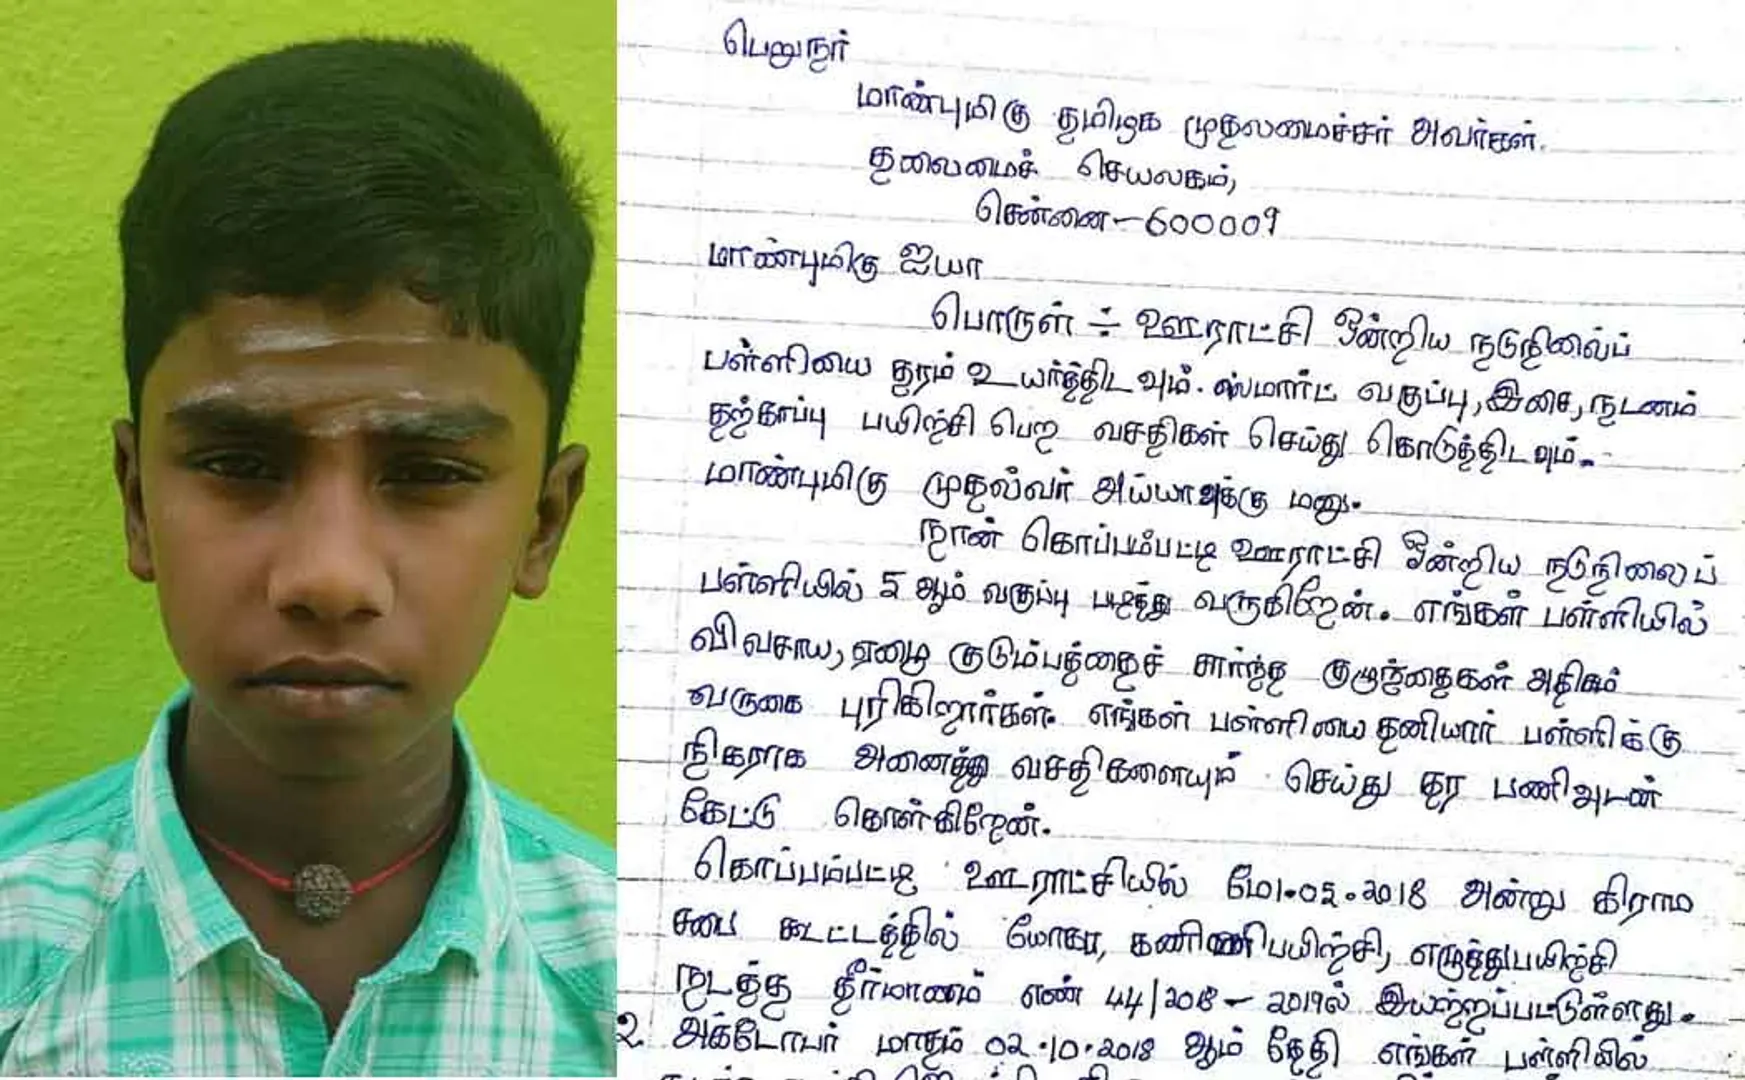 பெறுநர்
மாண்புமிகு தமிழக முதலமைச்சர் அவர்கள்.
தலைமைச் செயலகம்,
சென்னை - 600009
மாண்புமிகு ஐயா
பொருள் ÷ ஊராட்சி ஒன்றிய நடுநிலைப்
பள்ளியை தரம் உயர்த்திடவும். ஸ்மார்ட் வகுப்பு, இசை, நடனம்
தற்காப்பு பயிற்சி பெற வசதிகள் செய்து கொடுத்திடவும்.
மாண்புமிகு முதல்வர் அய்யாவுக்கு மனு.
நான் கொப்பம்பட்டி ஊராட்சி ஒன்றிய நடுநிலைப்
பள்ளியில் 5 ஆம் வகுப்பு படித்து வருகிறேன். எங்கள் பள்ளியில்
விவசாய, ஏழை குடும்பத்தைச் சார்ந்த குழந்தைகள் அதிகம்
வருகை புரிகிறார்கள். எங்கள் பள்ளியை தனியார் பள்ளிக்கு
நிகராக அனைத்து வசதிகளையும் செய்து தர பணிவுடன்
கேட்டு கொள்கிறேன்.
கொப்பம்பட்டி ஊராட்சியில் மே1.05.2018 அன்று கிராம
சபை கூட்டத்தில் யோகா, கணிணிபயிற்சி, எழுத்துபயிற்சி
நடத்த தீர்மானம் எண் 44/2018-2019ல் இயற்றப்பட்டுள்ளது.
2. அக்டோபர் மாதம் 02.10.2018 ஆம் தேதி எங்கள் பள்ளியில்